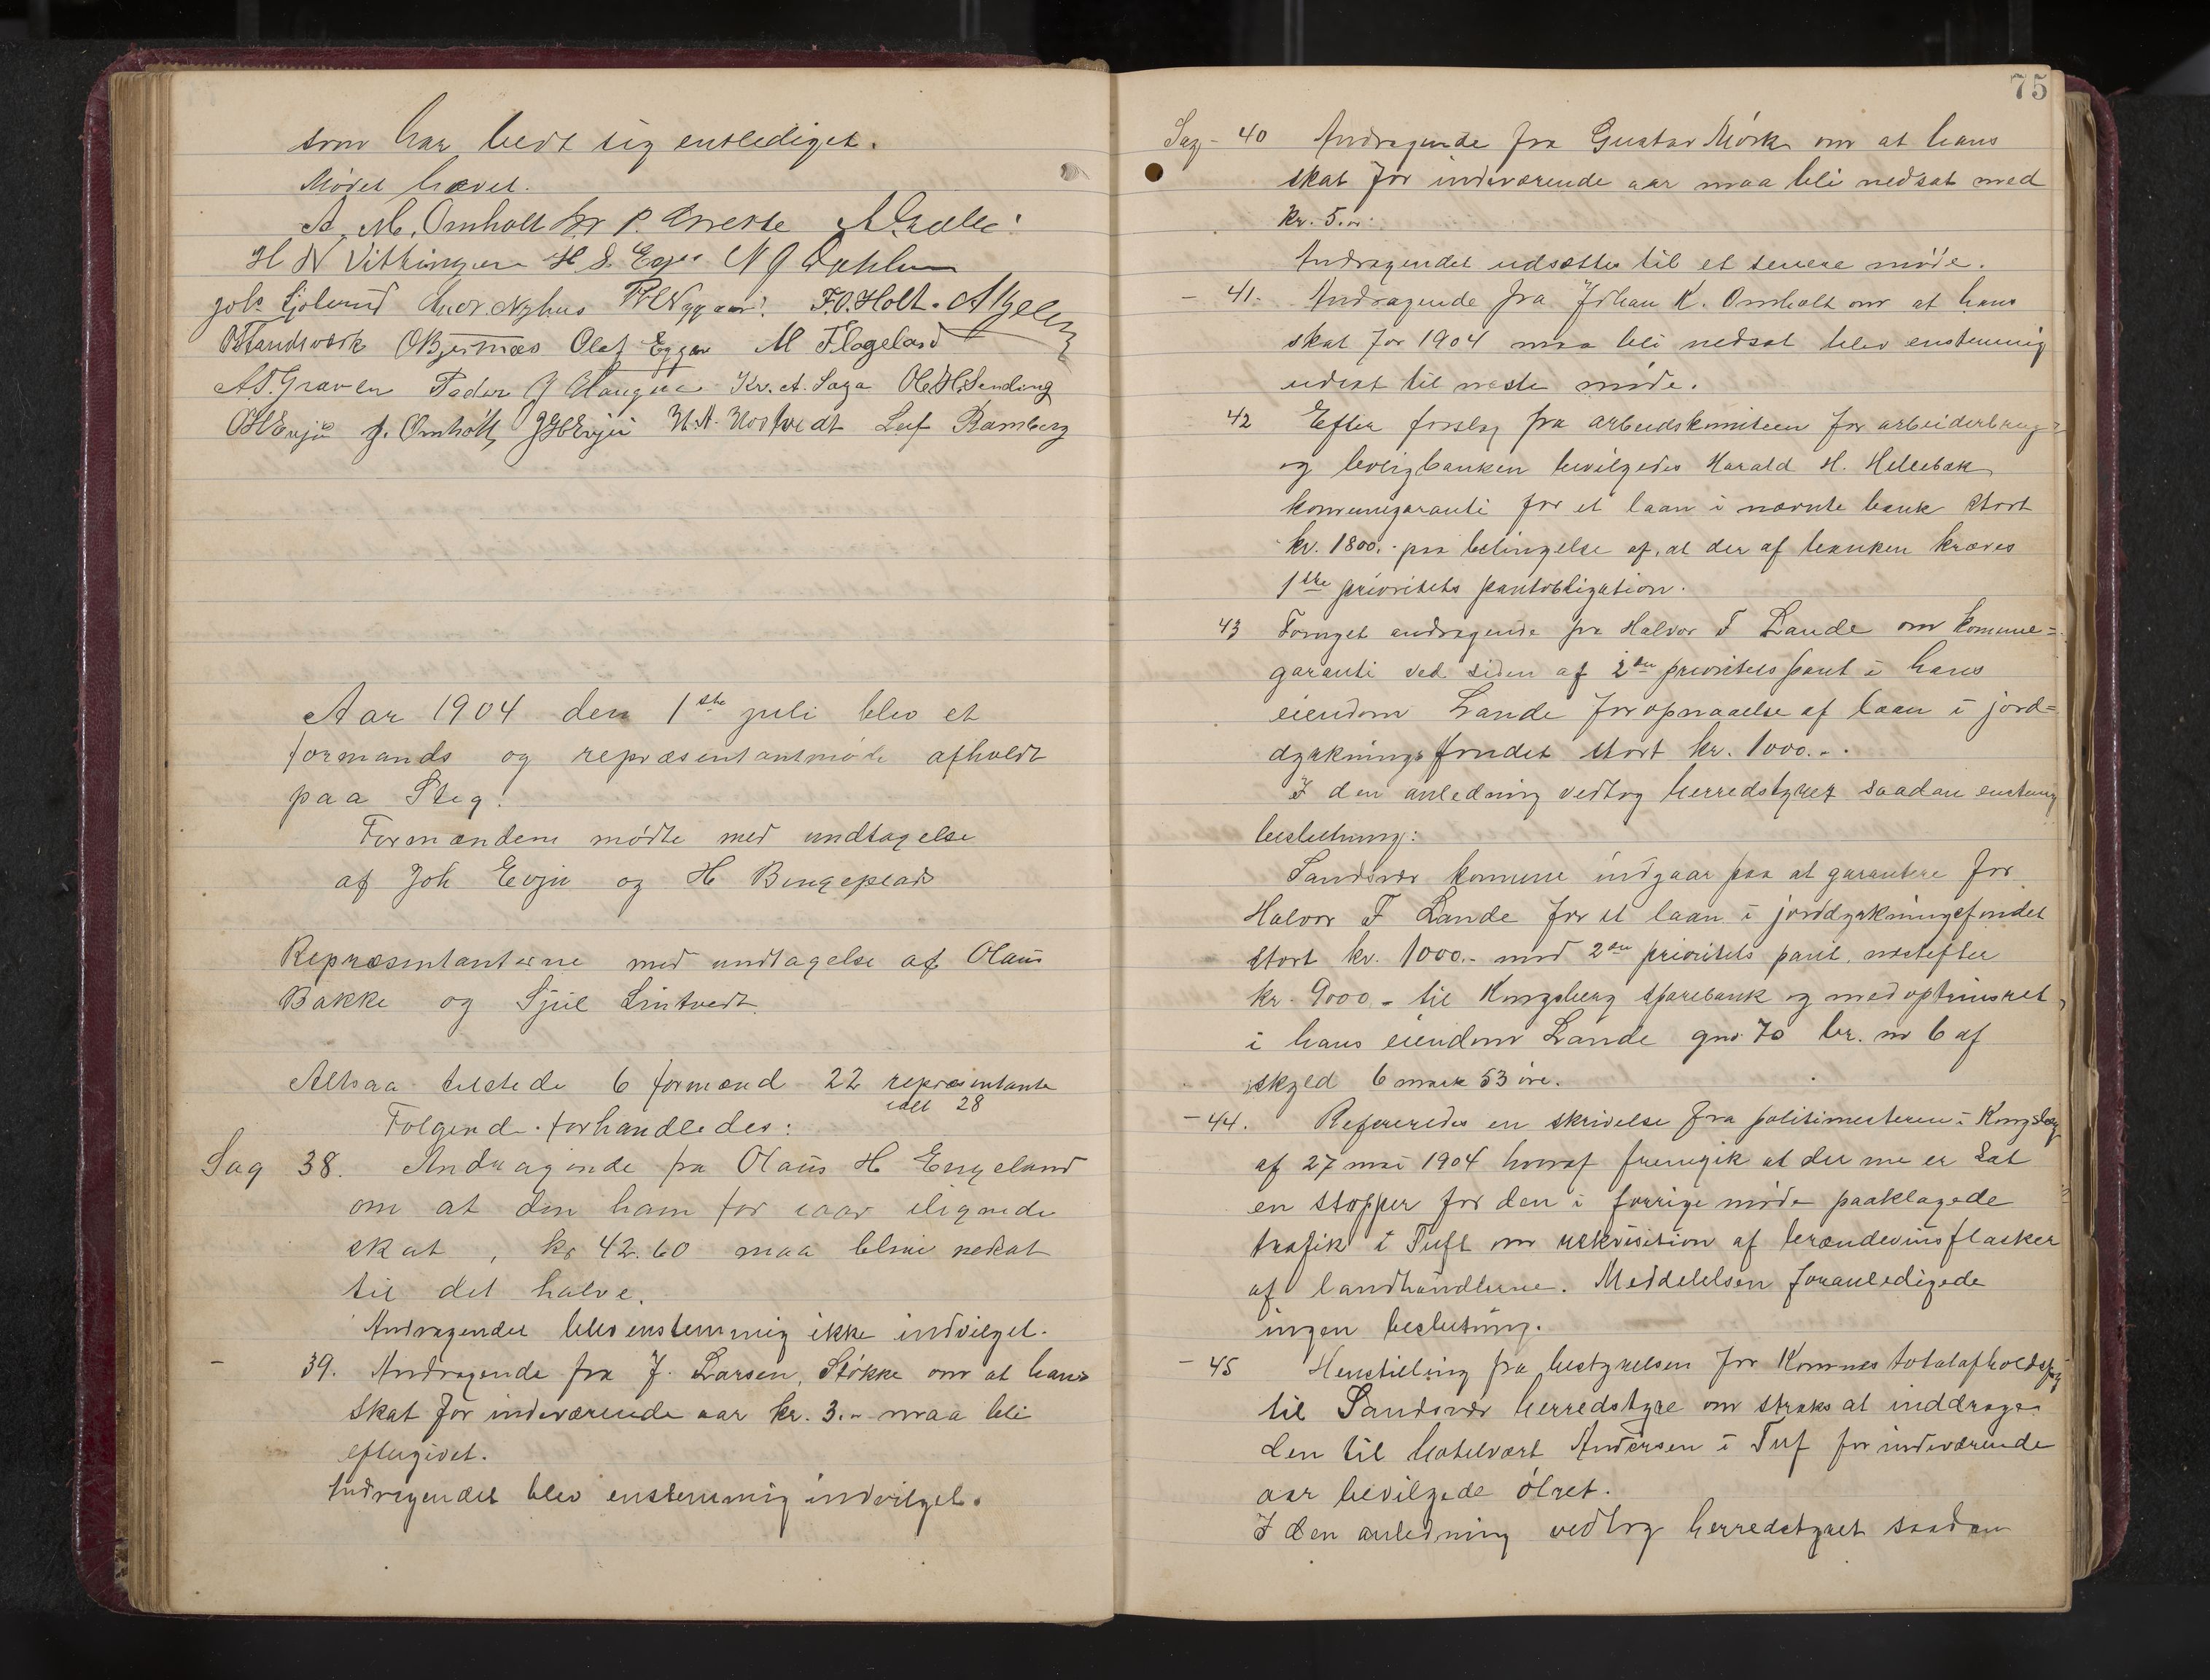 som har bedt sig entlediget.
Mødet hævet.
A. M. Omholt P.
H N Vittingen H. S. N J Dahlen
Joh. Nyhus F.O. Holt.
Landsværk O Bjerknæs Olaf Eggar M Flageland
A. T. Graven Peder J Haugen Kr. A. Saga Ole H. Sending
O H Evju J. Omholt J H Evju H. A. Hostvedt Leif Ramberg
Aar 1904 den 1ste juli blev et
formands og repræsentantmøde afholdt
paa Steg.
Formændene mødte med undtagelse
af Joh Evju og H Bingeplads
Repræsentanterne med undtagelse af Olaus
Bakke og Sjul Lintvedt.
Altsaa tilstede 6 formænd 22 repræsentanter
ialt 28
Følgende forhandledes:
Sag 38. Andragende fra Olaus H Engeland
om at den ham for iaar ilignede
skat, kr 42.60 maa blive nedsat
til det halve.
Andragendet blev enstemmig ikke indvilget.
- 39. Andragende fra J. Larsen, Støkke om at hans
skat for indeværende aar kr. 3.- maa bli
eftergivet.
Andragendet blev enstemmig indvilget.
75
Sag - 40 Andragende fra Gustav Mørk om at hans
skat for indeværende aar maa bli nedsat med
kr. 5.-
Andragendet udsættes til et senere møde.
- 41. Andragende fra Johan K. Omholt om at hans
skat for 1904 maa bli nedsat blev enstemmig
udsat til næste møde.
42 Efter forslag fra arbeidskomiteen for arbeiderbrug-
og boligbanken bevilgedes Harald H. Hellebæk
kommunegaranti for et laan i nævnte bank stort
kr. 1800.- paa betingelse af, at der af banken kræves
1ste prioritets pantobligation.
43 Fornyet andragende fra Halvor T Lande om kommune=
garanti ved siden af 2den prioritets pant i hans
eiendom Lande for opnaaelse af laan i jord=
dyrkningsfondet stort kr. 1000.-.
I den anledning vedtog herredstyret saadan enstemmig
beslutning:
Sandsvær kommune indgaar paa at garantere for
Halvor T Lande for et laan i jorddyrkningsfondet
stort kr. 1000.- mod 2den prioritets pant, næstefter
kr. 9000.- til Kongsberg sparebank og med opriinsret
i hans eiendom Lande gno 70 br. no 6 af
skyld 6 mark 53 øre.
- 44. Refereredes en skrivelse fra politimesteren i Kongsberg
af 27 mai 1904 hvoraf fremgik at der nu er sat
en stopper for den i forrige møde paaklagede
trafik i Tuft om rekvisition af brændevinsflasker
af landhandlerne. Meddelelsen foranledigede
ingen beslutning.
- 45 Henstilling fra bestyrelsen for Komnes totalafholdsfg
til Sandsvær herredstyre om straks at inddrage
den til hotelvært Andersen i Tuf for indeværende
aar bevilgede ølret.
I den anledning vedtog herredstyret saadan